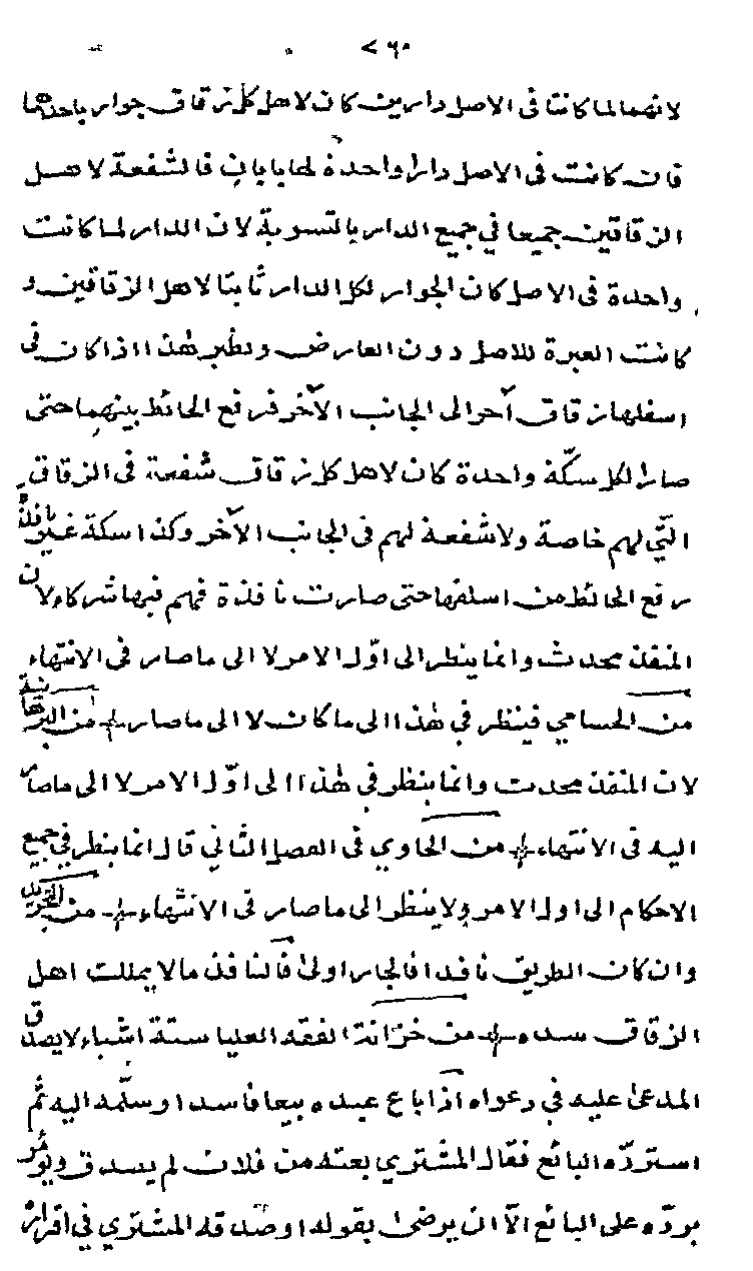 ٧٦٥
لانهما لما كانتا فى الاصل دارين كان لاهل كل زقاق جوار باحدهما
فان كانت فى الاصل دارا واحدة لها بابان فالشفعة لاهل
الزقاقين جميعا في جميع الدار بالتسوية لان الدار لما كانت
واحدة فى الاصل كان الجوار لكل الدار ثابتا لاهل الزقاقين و
كانت العبرة للاصل دون العارض ونظير هٰذا اذا كان فى
اسفلها زقاق آخر الى الجانب الآخر فرفع الحائط بينهما حتى
صار الكل سكّة واحدة كان لاهل كل زقاق شفعة فى الزقاق
التّي لهم خاصة ولا شفعة لهم فى الجانب الآخر وكذا سكة غير نافذة
رفع الحائط من اسفلها حتى صارت نافذة فهم فيها شركاء لان
المنفذ محدث وانما ينظر الى اوّل الامر لا الى ما صار فى الانتهاء
من الحسامي فينظر في هٰذا الى ما كان لا الى ما صار من البرهانية
لان المنفذ محدث وانما ينظر في هٰذا الى اوّل الامر لا الى ما صار
اليه فى الانتهاء من الحاوي فى الفصل الثاني قال انما ينظر في جميع
الاحكام الى اول الامر ولا ينظر الى ما صار فى الانتهاء من التجريد
وان كان الطريق نافدا فالجار اولىٰ فالنافذ ما لا يملك اهل
الزقاق سده من خزانة الفقه العليا ستة اشياء لا يصدق
المدعىٰ عليه في دعواه اذا باع عبده بيعا فاسدا وسلّمه اليه ثم
استردّه البائع فقال المشتري بعته من فلان لم يصدق ويؤمر
بردّه على البائع الّا ان يرضىٰ بقوله او صدقه المشتري في اقراره